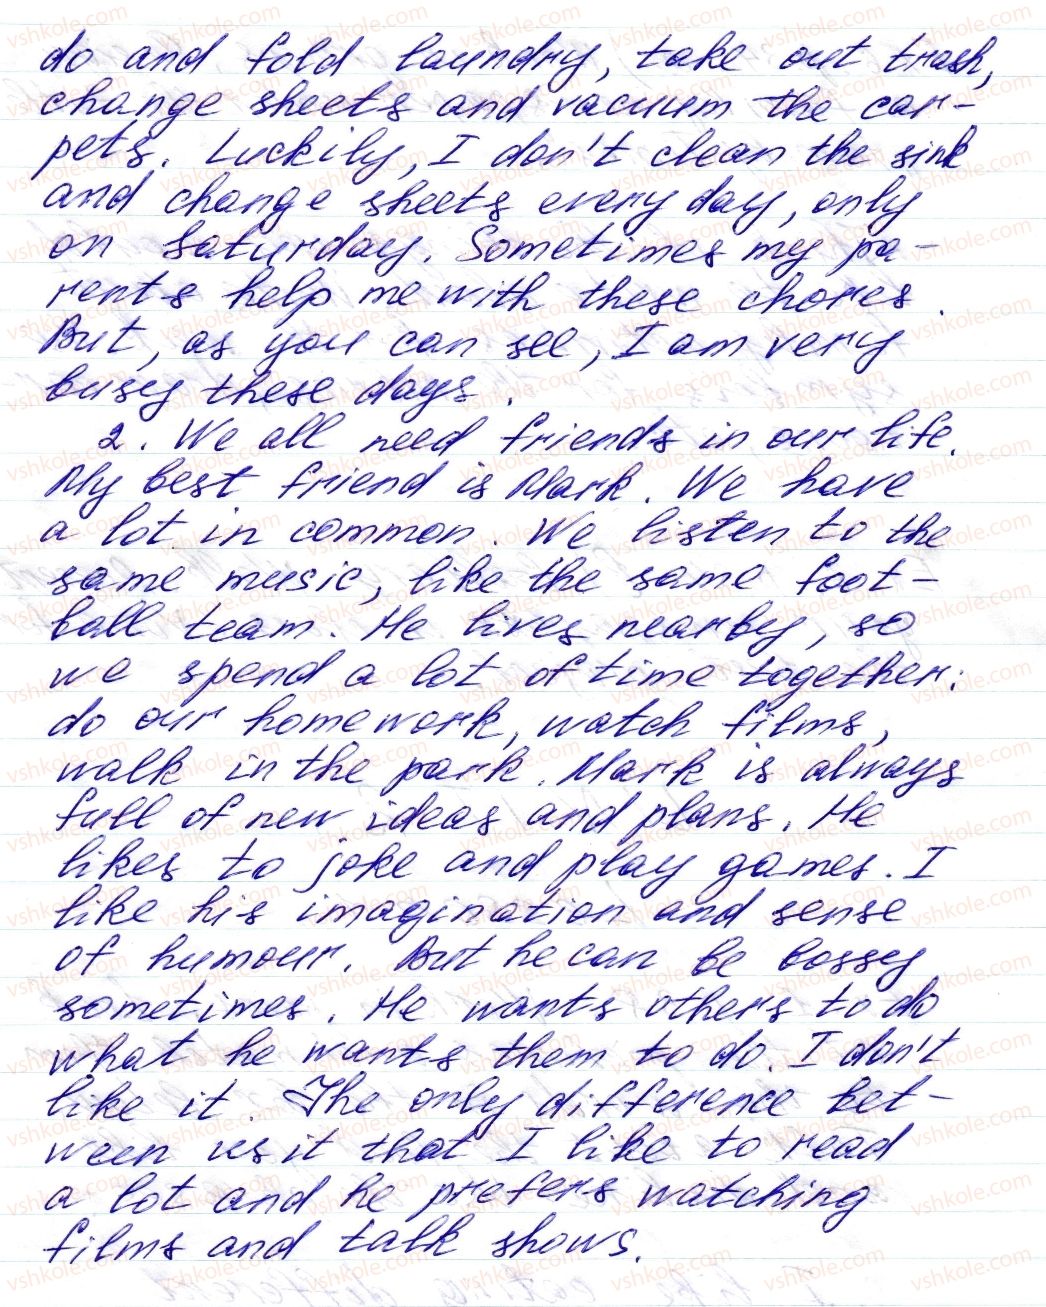 do and fold laundry, take out trash,
change sheets and vacuum the car-
pets. Luckily, I don't clean the sink
and change sheets every day, only
on Saturday. Sometimes my pa-
rents help me with these chores.
But, as you can see, I am very
busy these days.
2. We all need friends in our life.
My best friend is Mark. We have
a lot in common. We listen to the
same music, like the same foot-
ball team. He lives nearby, so
we spend a lot of time together:
do our homework, watch films,
walk in the park. Mark is always
full of new ideas and plans. He
likes to joke and play games. I
like his imagination and sense
of humour. But he can be bossy
sometimes. He wants others to do
what he wants them to do. I don't
like it. The only difference bet-
ween us it that I like to read
a lot and he prefers watching
films and talk shows.